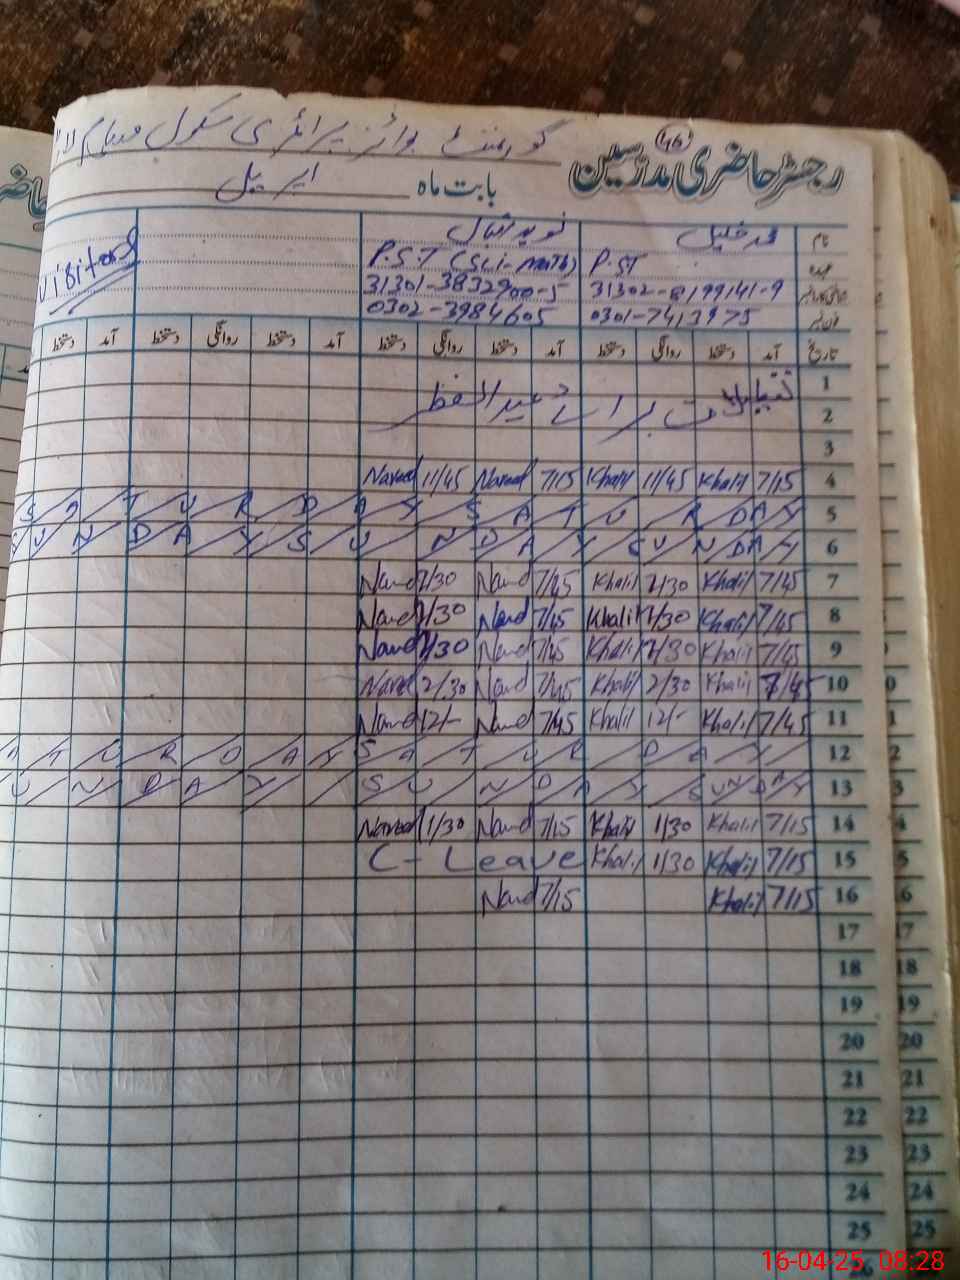 رجسٹر حاضری مدرسین
46
گورنمنٹ بوائز پرائمری سکول
بابت ماہ اپریل
نام محمد خلیل نوید اقبال
عہدہ P.ST P.S.T (Sci-Math) Visitors
31302-8199141-9 31301-3832900-5
0301-7413975 0302-3984605
تاریخ آمد دستخط روانگی دستخط آمد دستخط روانگی دستخط آمد دستخط روانگی دستخط آمد دستخط
1
2 تعطیلات برائے عید الفطر
3
4 7/15 Khalil 11/45 Khalil 7/15 Naveed 11/45 Naveed
5 SATURDAY SATURDAY
6 SUNDAY SUNDAY SUNDAY
7 7/45 Khalil 2/30 Khalil 7/45 Navd 2/30 Navd
8 7/45 Khalil 2/30 Khalil 7/45 Navd 2/30 Navd
9 7/45 Khalil 2/30 Khalil 7/45 Navd 2/30 Navd
10 7/45 Khalil 2/30 Khalil 7/45 Navd 2/30 Naved
11 7/45 Khalil 12/- Khalil 7/45 Navd 12/- Navd
12 ATURDAY SATURDAY
13 UNDAY SUNDAY SUNDAY
14 7/15 Khalil 1/30 Khalil 7/15 Navd 1/30 Naveed
15 7/15 Khalil 1/30 Khalil C-Leave
16 7/15 Khalil 7/15 Navd
17
18
19
20
21
22
23
24
25
16-04-25 08:28